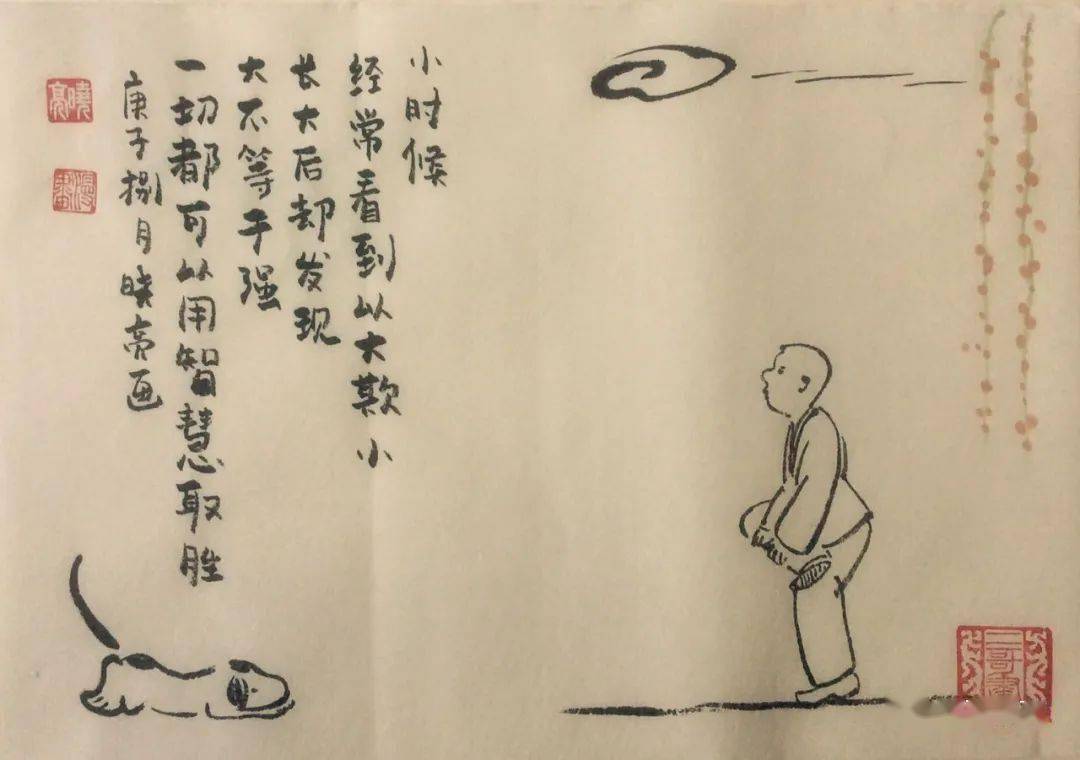 小时候
经常看到以大欺小
长大后却发现
大不等于强
一切都可以用智慧取胜
庚子捌月晓亮画